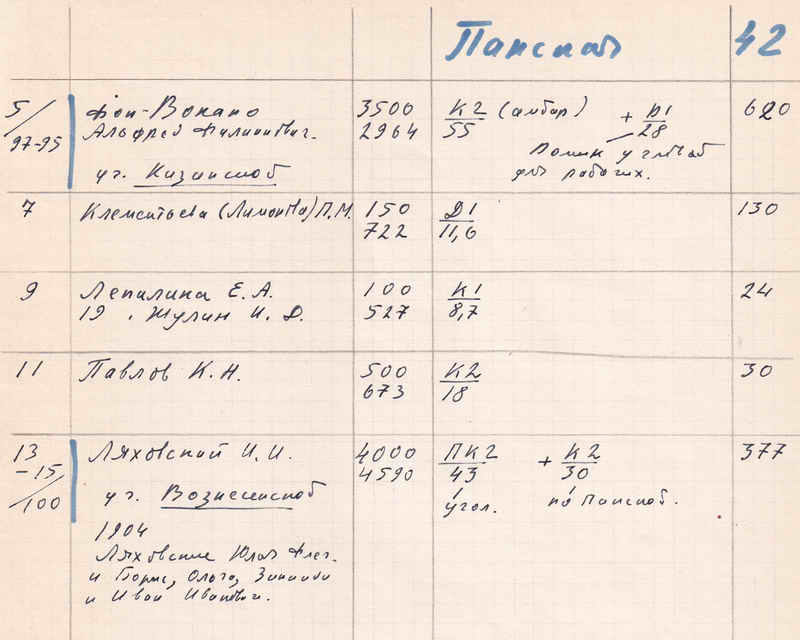 Панская 42
5/97-95 фон-Вокано 3500 К2 (амбар) + Д1 620
Альфред Филиппович. 2964 55 28
Домик у угольной
для рабочих.
уг. Казанской
7 Клементьева (Лимонова) П.М. 150 Д1 130
722 11,6
9 Лепалина Е. А. 100 К1 24
19 . Жулин И. Д. 527 8,7
11 Павлов К. Н. 500 К2 30
673 18
13 Ляховский И. И. 4000 ПК2 + К2 377
-15 4590 43 30
/100 уг. Вознесенской угол. по Панской.
1904
Ляховские Юлия
и Борис, Ольга, Зинаида
и Иван Иванович.